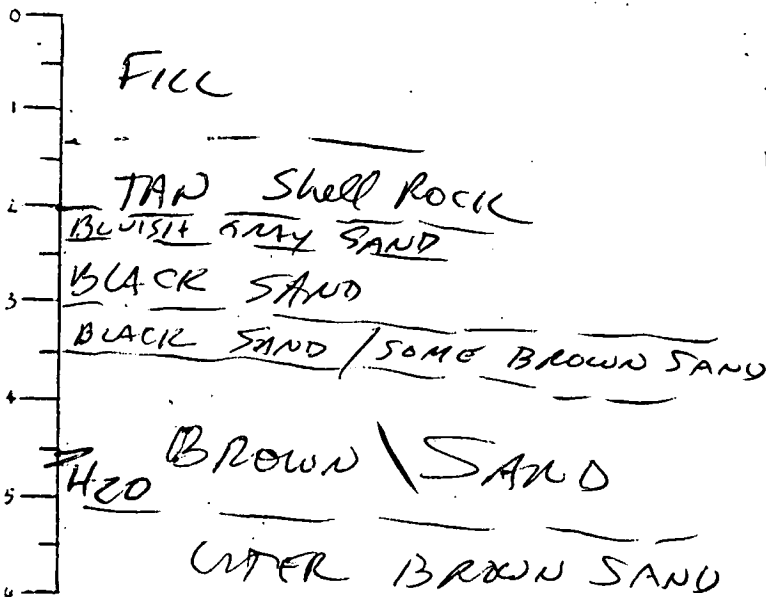 0
FILL
1
TAN Shell ROCK
2
BLUISH GRAY SAND
BLACK SAND
3
BLACK SAND / SOME BROWN SAND
4
BROWN \ SAND
H20
5
LITER BROWN SAND
6